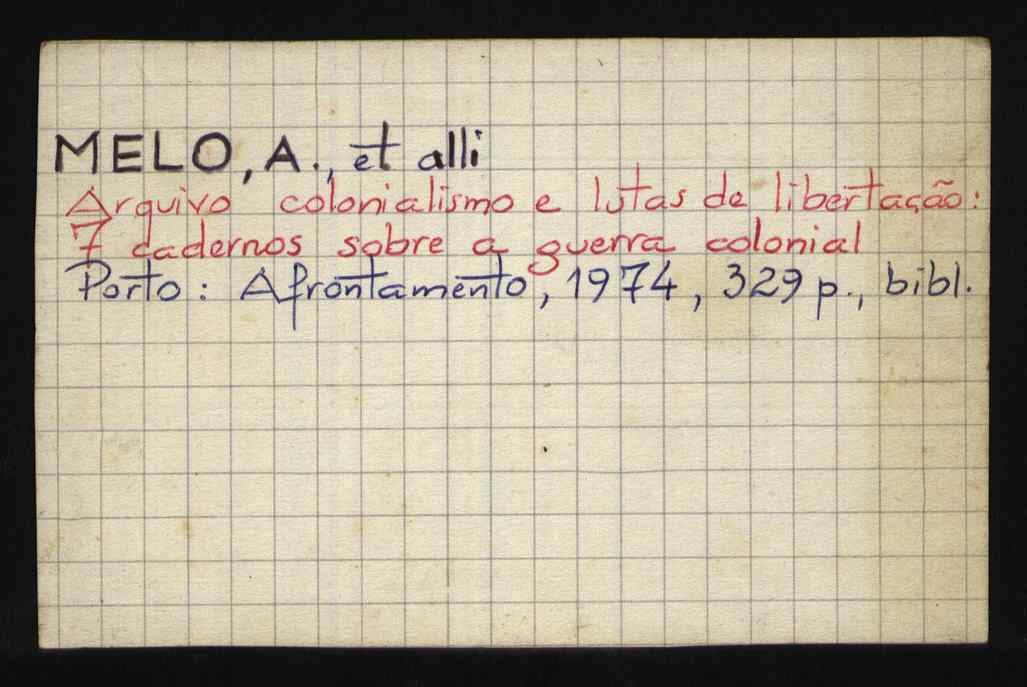 MELO, A., et alli
Arquivo colonialismo e lutas de libertação:
7 cadernos sobre a guerra colonial
Porto: Afrontamento, 1974, 329 p., bibl.